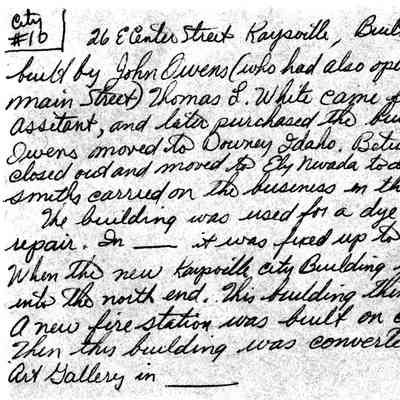 City
#10
26 E Center Street Kaysville, Buil
build by John Owens (who had also ope
main Street) Thomas L. White came f
Assitant, and later purchased the bu
Owens moved to Downey Idaho. Betw
closed out and moved to Ely Nevada to
smiths carried on the business in th
The building was used for a dye
repair. In ___ it was fixed up to
When the new Kaysville City Building
into the north end. This building the
A new fire station was built on
Then this building was converte
Art Gallery in ___